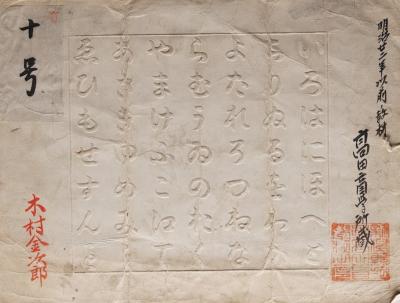 明治廿二年以前ノ教材
高田盲学校所蔵
いろはにほへと
ちりぬるをわか
よたれそつねな
らむうゐのおく
やまけふこ江て
あさきゆめみし
ゑひもせすん
十号
木村金次郎